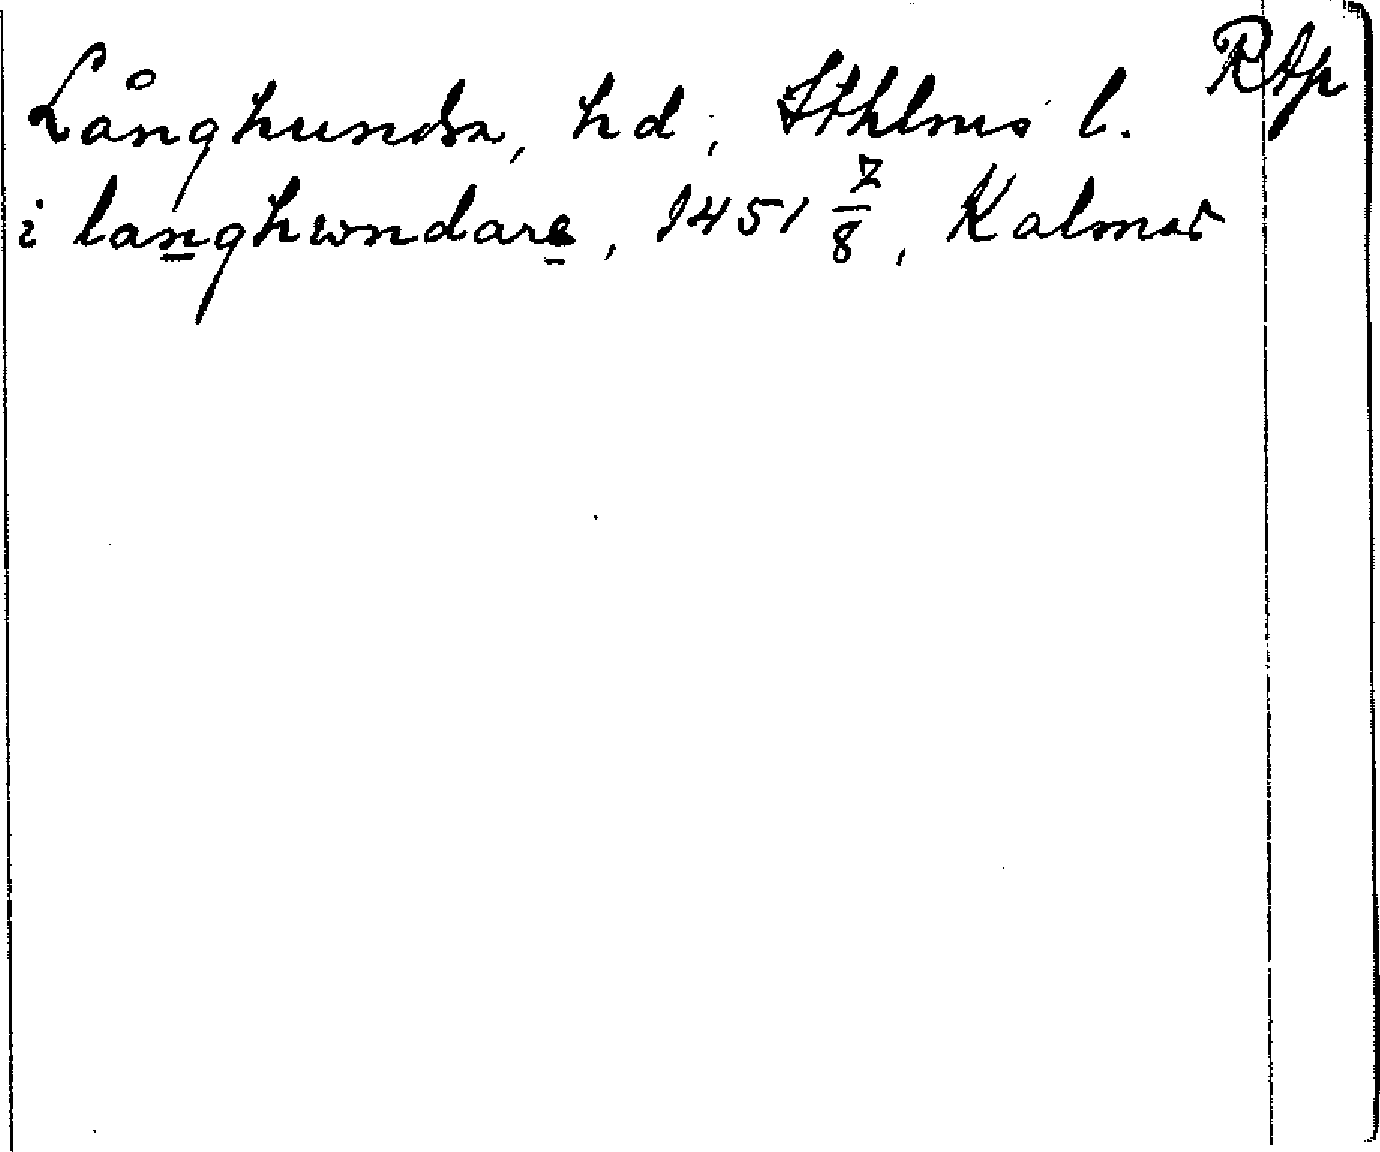 Långhundra, hd, Sthlms l. RAp
i langhwndare, 1451 7/8, Kalmar